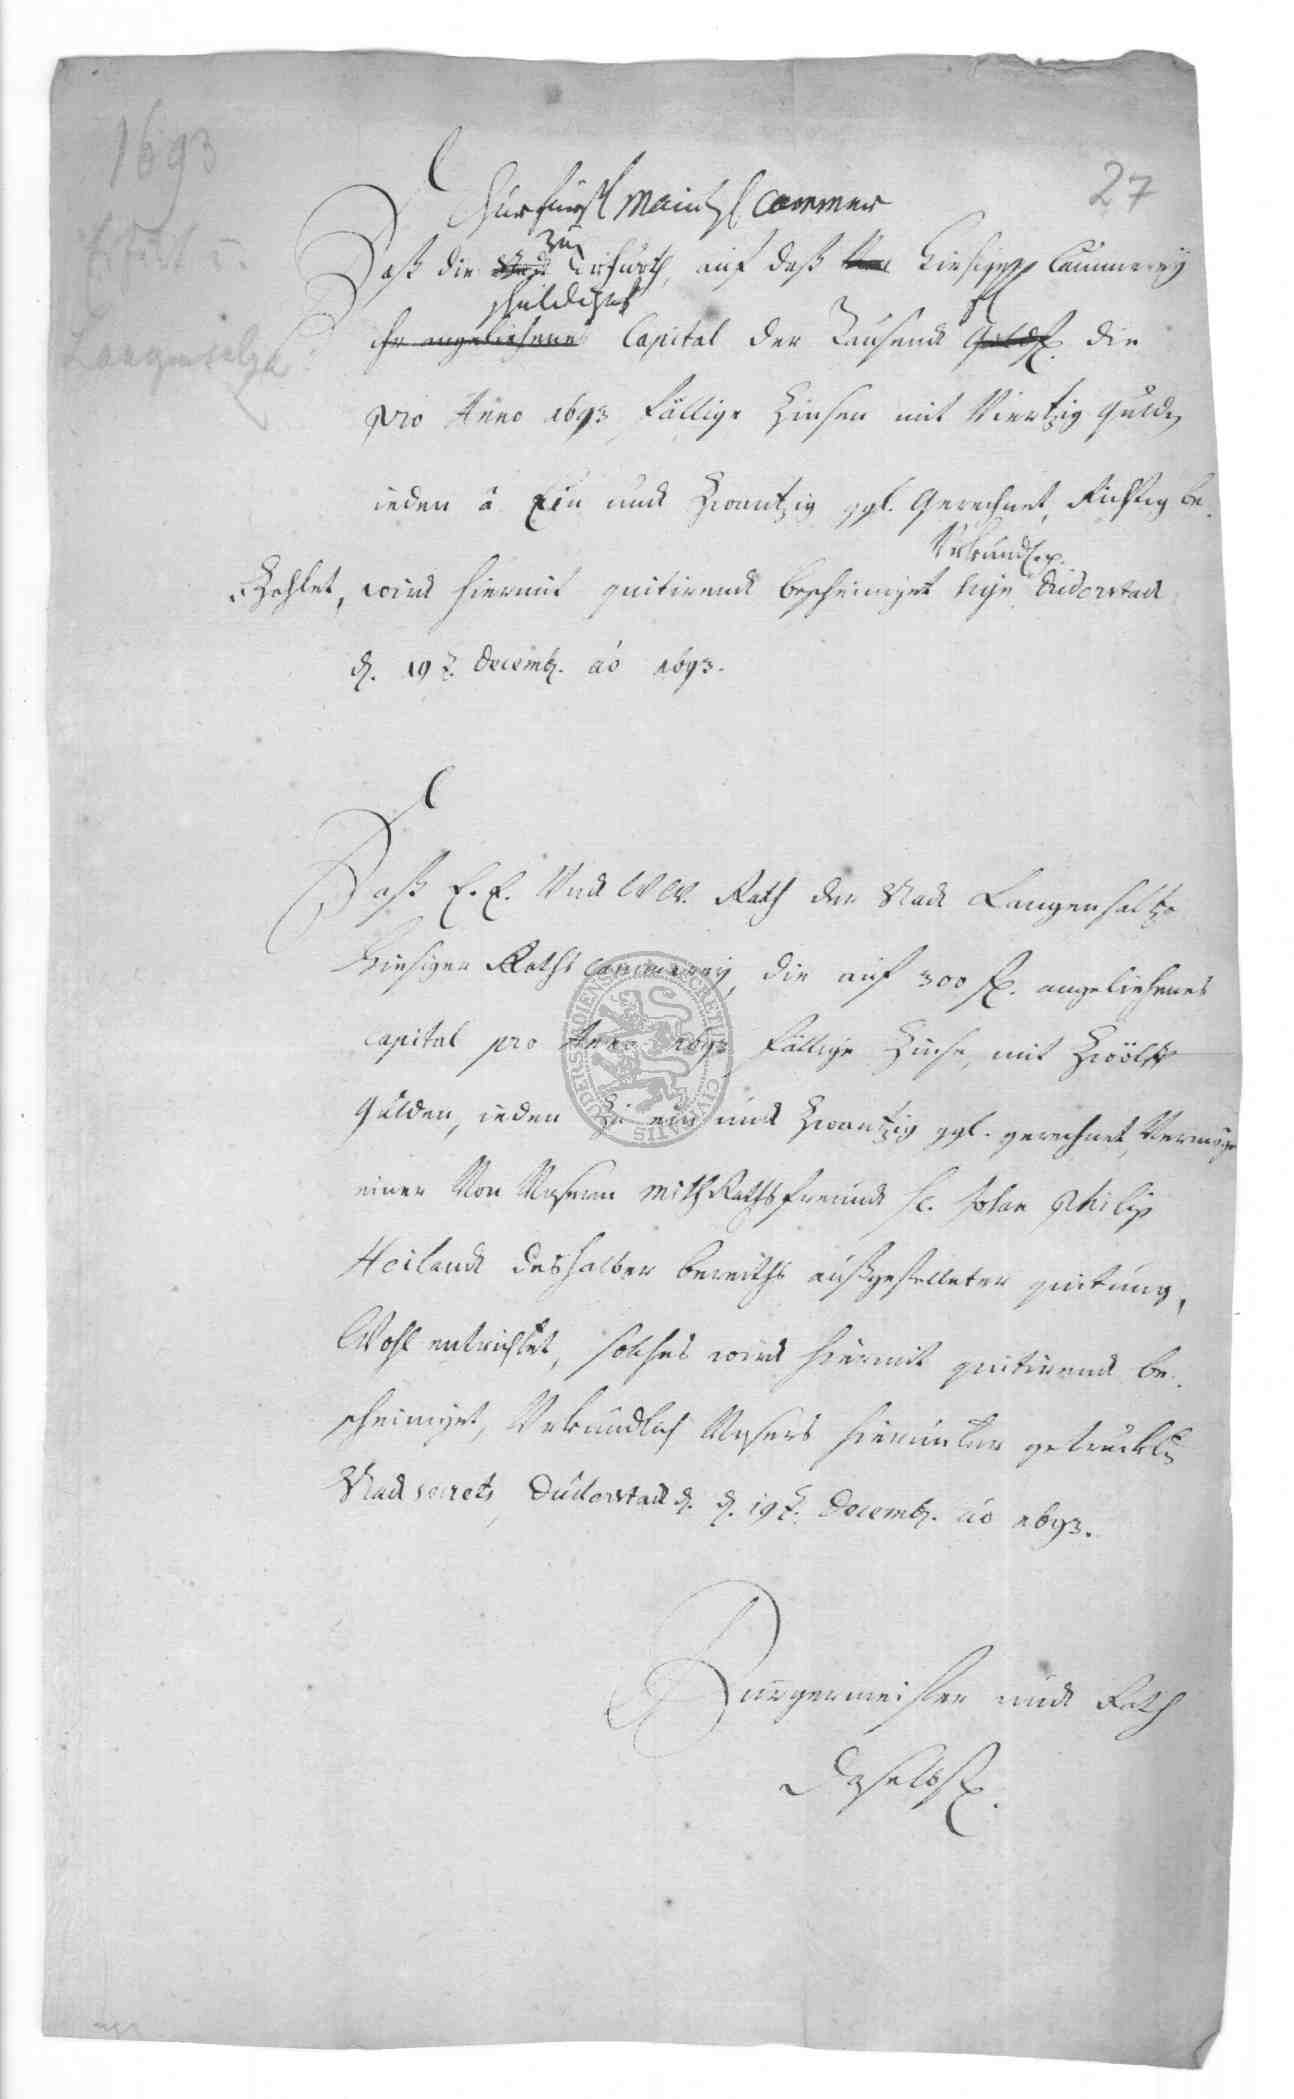 1693
27
Erfurt u.
Langensalza
Churfürstl Maintzl Cammer
Daß die Stad zu Erfurth, auf daß von hiesiger Cämmerey
schuldiges
ihr angeliehenes Capital der Tausend Goldfl. die
pro Anno 1693 fällige Zinsen mit Viertzig Guld
ieden â Ein und Zwantzig ggl. Gerechnet, Richtig be-
Urkundl.
Zahlet, wird hiermit quitirend bescheiniget Duderstad
d. 19 t. Decemb. ao 1693.
Daß E. E. Und WW. Rath der Stad Langensaltza
hiesiger Raths Cammerey, die auf 300 fl. angeliehenes
Capital pro Anno 1693 fällige Zinse, mit Zwölff
Gülden, ieden Zu ein und Zwantzig ggl. gerechnet, Vermöge
einer Von Unserm Mith Rathsfreund H. Johan Philip
Heiland deshalber bereiths außgestelleter quitung,
Wohl entrichtet, solches wird hiermit quitirend be-
scheiniget, Urkundlich Unsers hierunter getruckten
Stad secrets, Duderstad d. 19 t. Decemb. ao 1693.
Burgermeister und Rath
Daselbst.